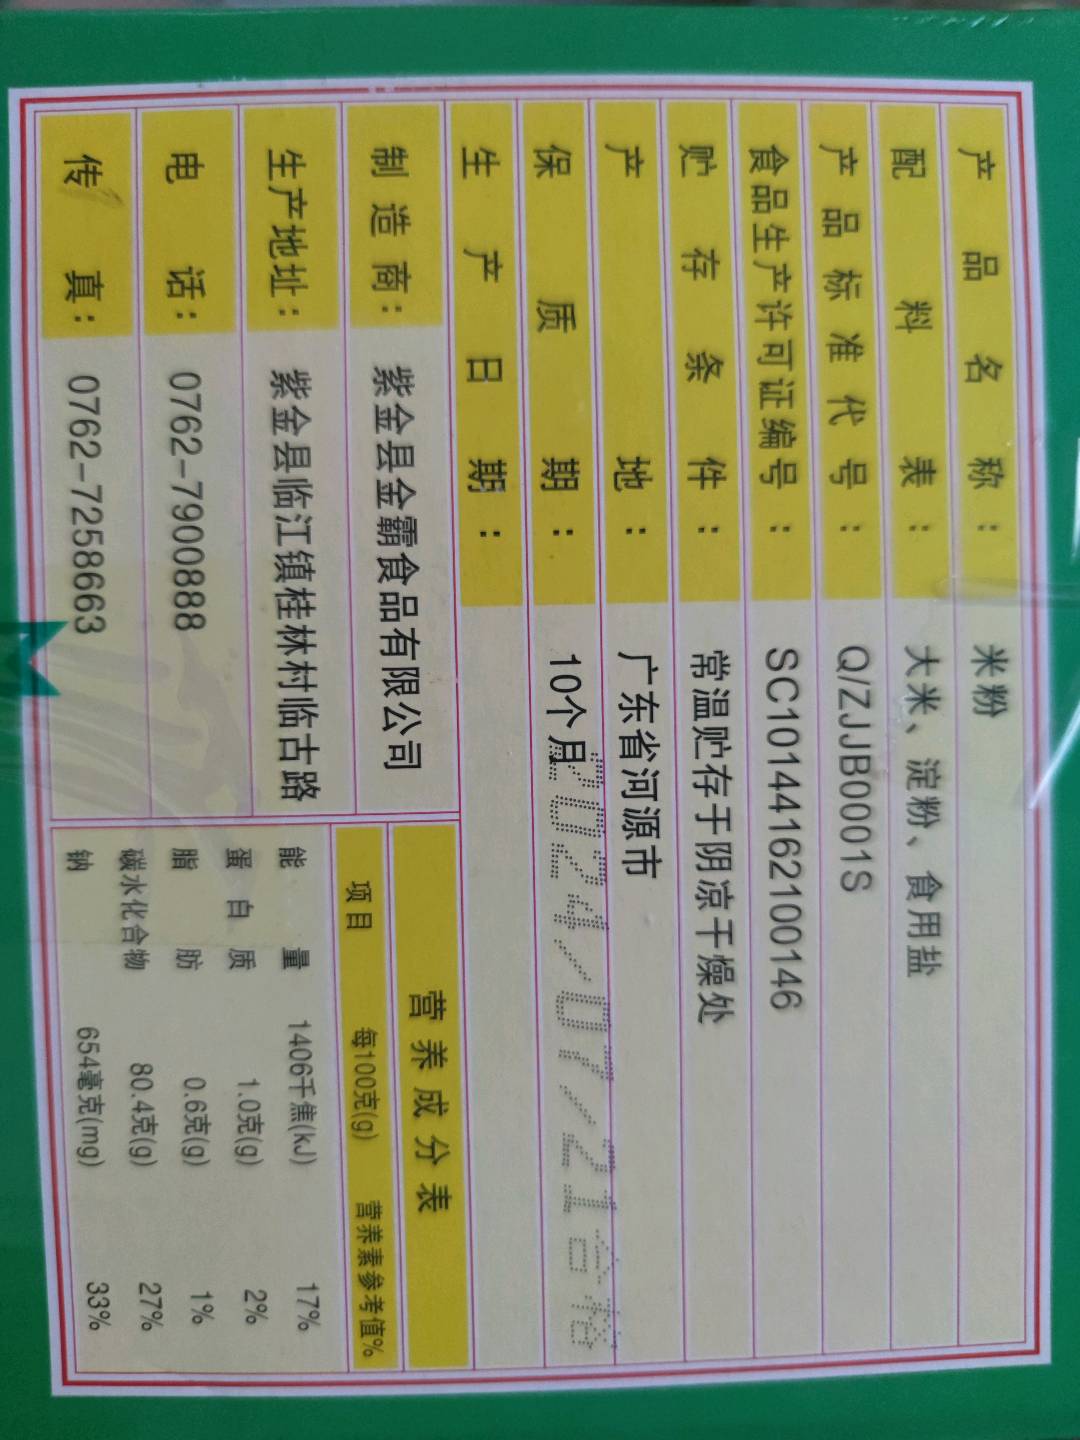 产品名称：米粉
配料表：大米、淀粉、食用盐
产品标准代号：Q/ZJJB0001S
食品生产许可证编号：SC10144162100146
贮存条件：常温贮存于阴凉干燥处
产地：广东省河源市
保质期：10个月
2024/07/21合格
生产日期：
制造商：紫金县金霸食品有限公司
生产地址：紫金县临江镇桂林村临古路
电话：0762-7900888
传真：0762-7258663
营养成分表
项目 每100克(g) 营养素参考值%
能量 1406千焦(kJ) 17%
蛋白质 1.0克(g) 2%
脂肪 0.6克(g) 1%
碳水化合物 80.4克(g) 27%
钠 654毫克(mg) 33%